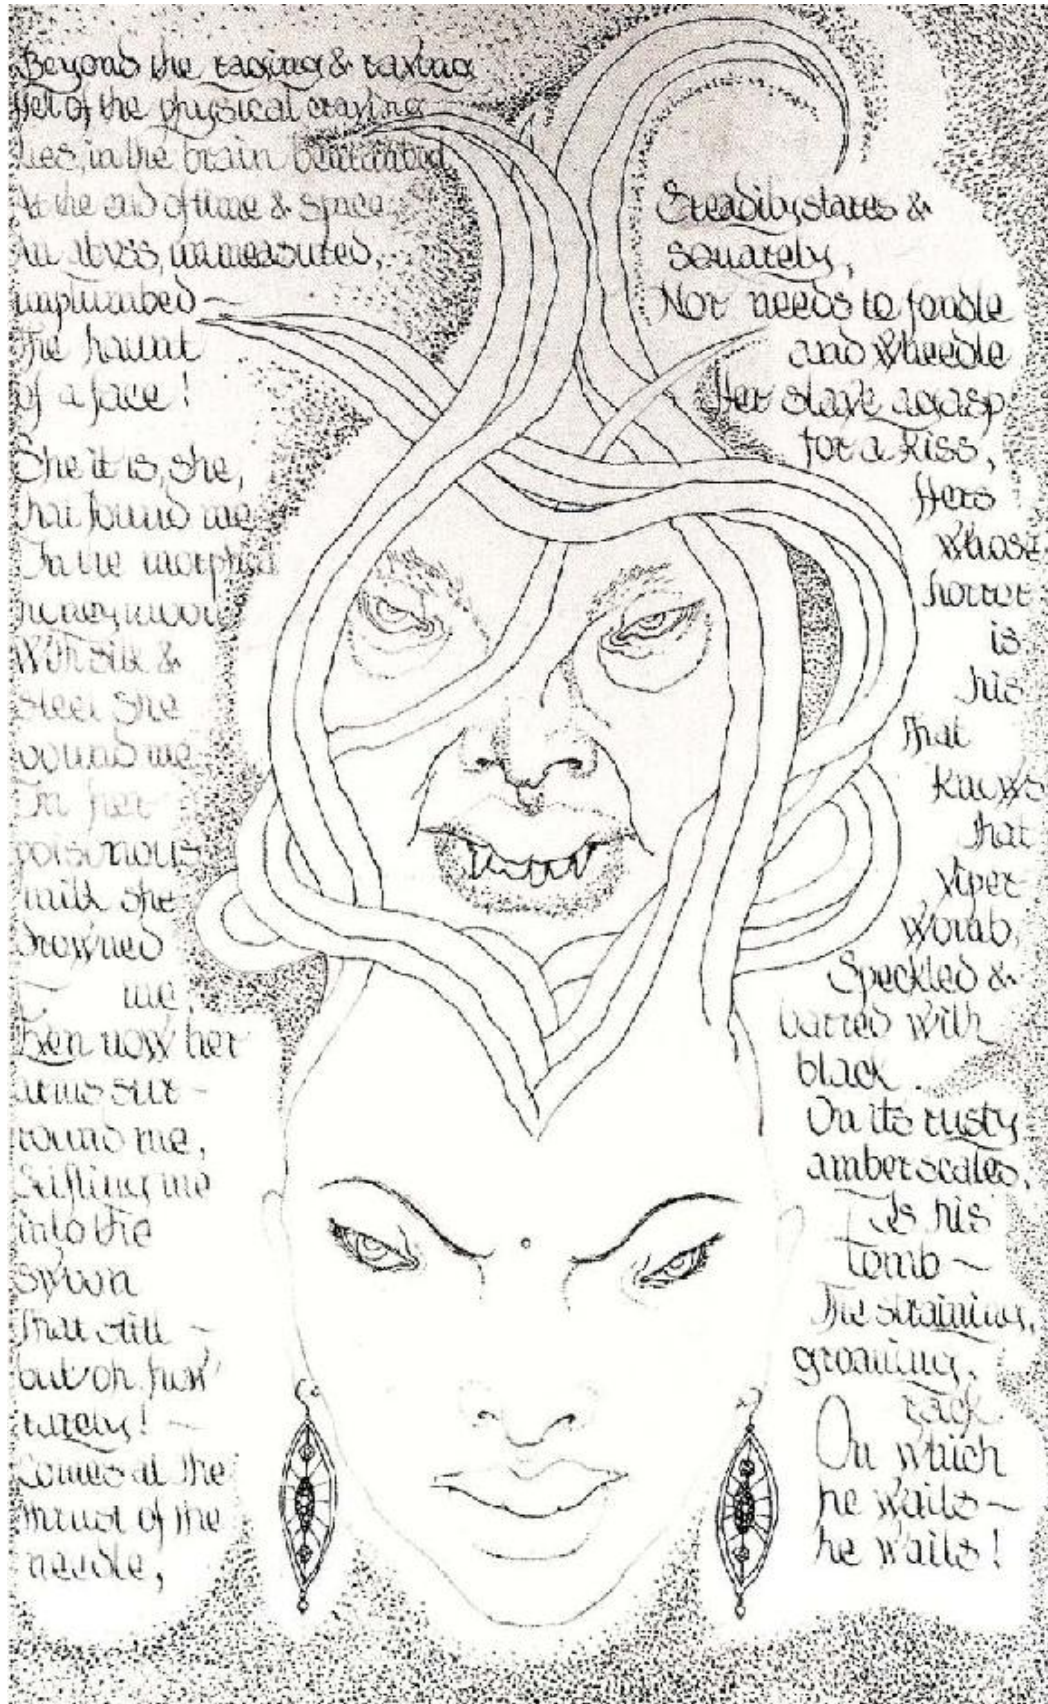 Beyond the raging & raving
Hell of the physical craving
Lies, in the brain benumbed
At the end of time & space
An abyss, unmeasured,
unplumbed ~
The haunt
of a face!
She it is, she,
that found me
In the morphia
honeymoon
With silk &
steel she
bound me
In her
poisonous
milk she
drowned
me.
Even now her
arms sur-
round me,
Stifling me
into the
swoon
That still ~
but oh, how
rarely! ~
Comes at the
thrust of the
needle,
Steadily stares &
squarely,
Nor needs to fondle
and wheedle
Her slave agasp
for a kiss,
Hers
whose
horror
is
his
That
knows
that
viper
womb,
Speckled &
barred with
black
On its rusty
amber scales,
Is his
tomb ~
The straining,
groaning,
rack
On which
he wails ~
he wails!